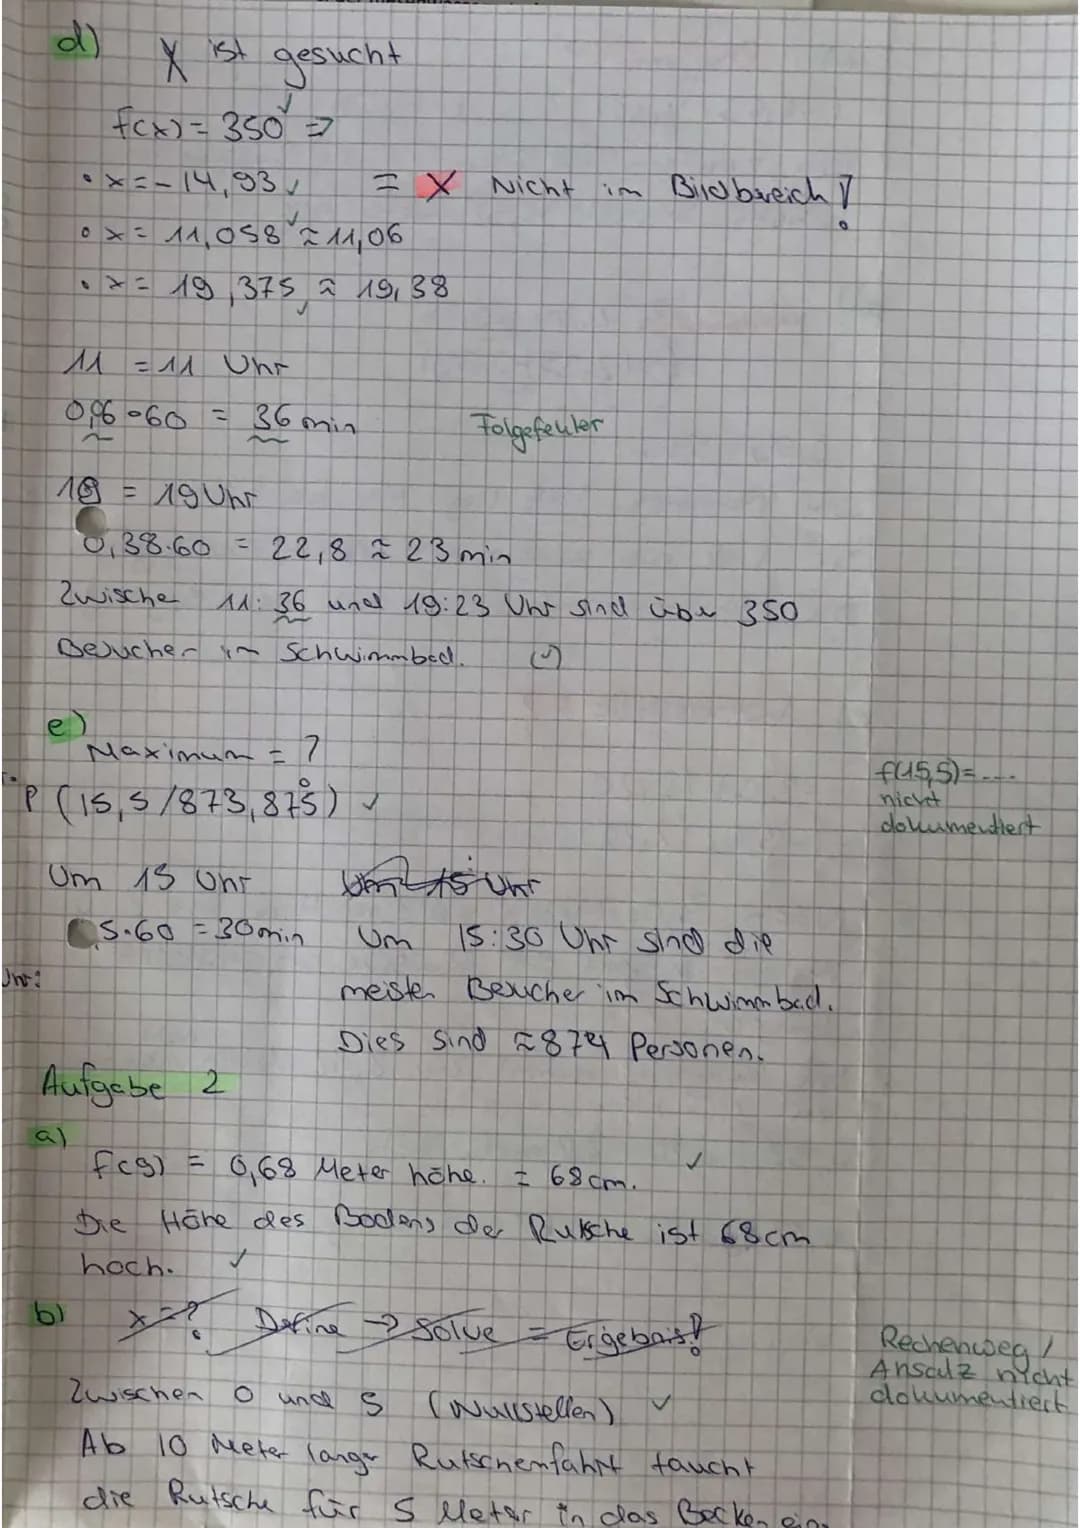 d) X ist gesucht
f(x) = 350 ✓ =>
• x = -14,93 ✓ = X Nicht im Bildbereich!
• x = 11,058 ✓ ≈ 11,06
• x = 19,375 ≈ 19,38 ✓
11 = 11 Uhr
0,06 · 60 = 36 min Folgefehler
19 = 19 Uhr
0,38 · 60 = 22,8 ≈ 23 min
Zwische 11:36 und 19:23 Uhr sind über 350
Besucher im Schwimmbad. (✓)
e)
Maximum = ?
P (15,5/873,875) ✓
f(15,5)=....
nicht
dokumentiert
Um 15 Uhr Um 15 Uhr
,5 · 60 = 30 min Um 15:30 Uhr sind die
Uhr:
meisten Besucher im Schwimmbad.
Dies sind ≈ 874 Personen.
Aufgabe 2
a)
f(9) = 0,68 Meter höhe. = 68 cm. ✓
Die Höhe des Bodens der Rutsche ist 68 cm
hoch. ✓
b) x = ? Define → Solve = Ergebnis!
Rechenweg /
Ansatz nicht
dokumentiert
Zwischen 0 und 5 (Nullstellen) ✓
Ab 10 Meter langer Rutschenfahrt taucht
die Rutsche für 5 Meter in das Becken ein.